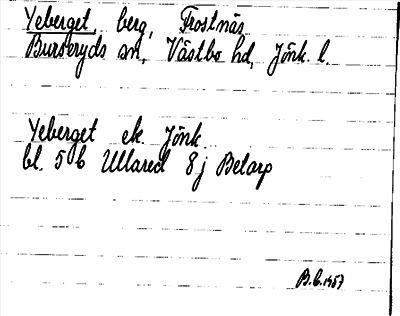 Yeberget, berg, Frostnäs
Burseryds sn, Västbo hd, Jönk. l.
Yeberget ek. Jönk
bl. 5 b Ullared 8 j Betarp
B.E. 1957